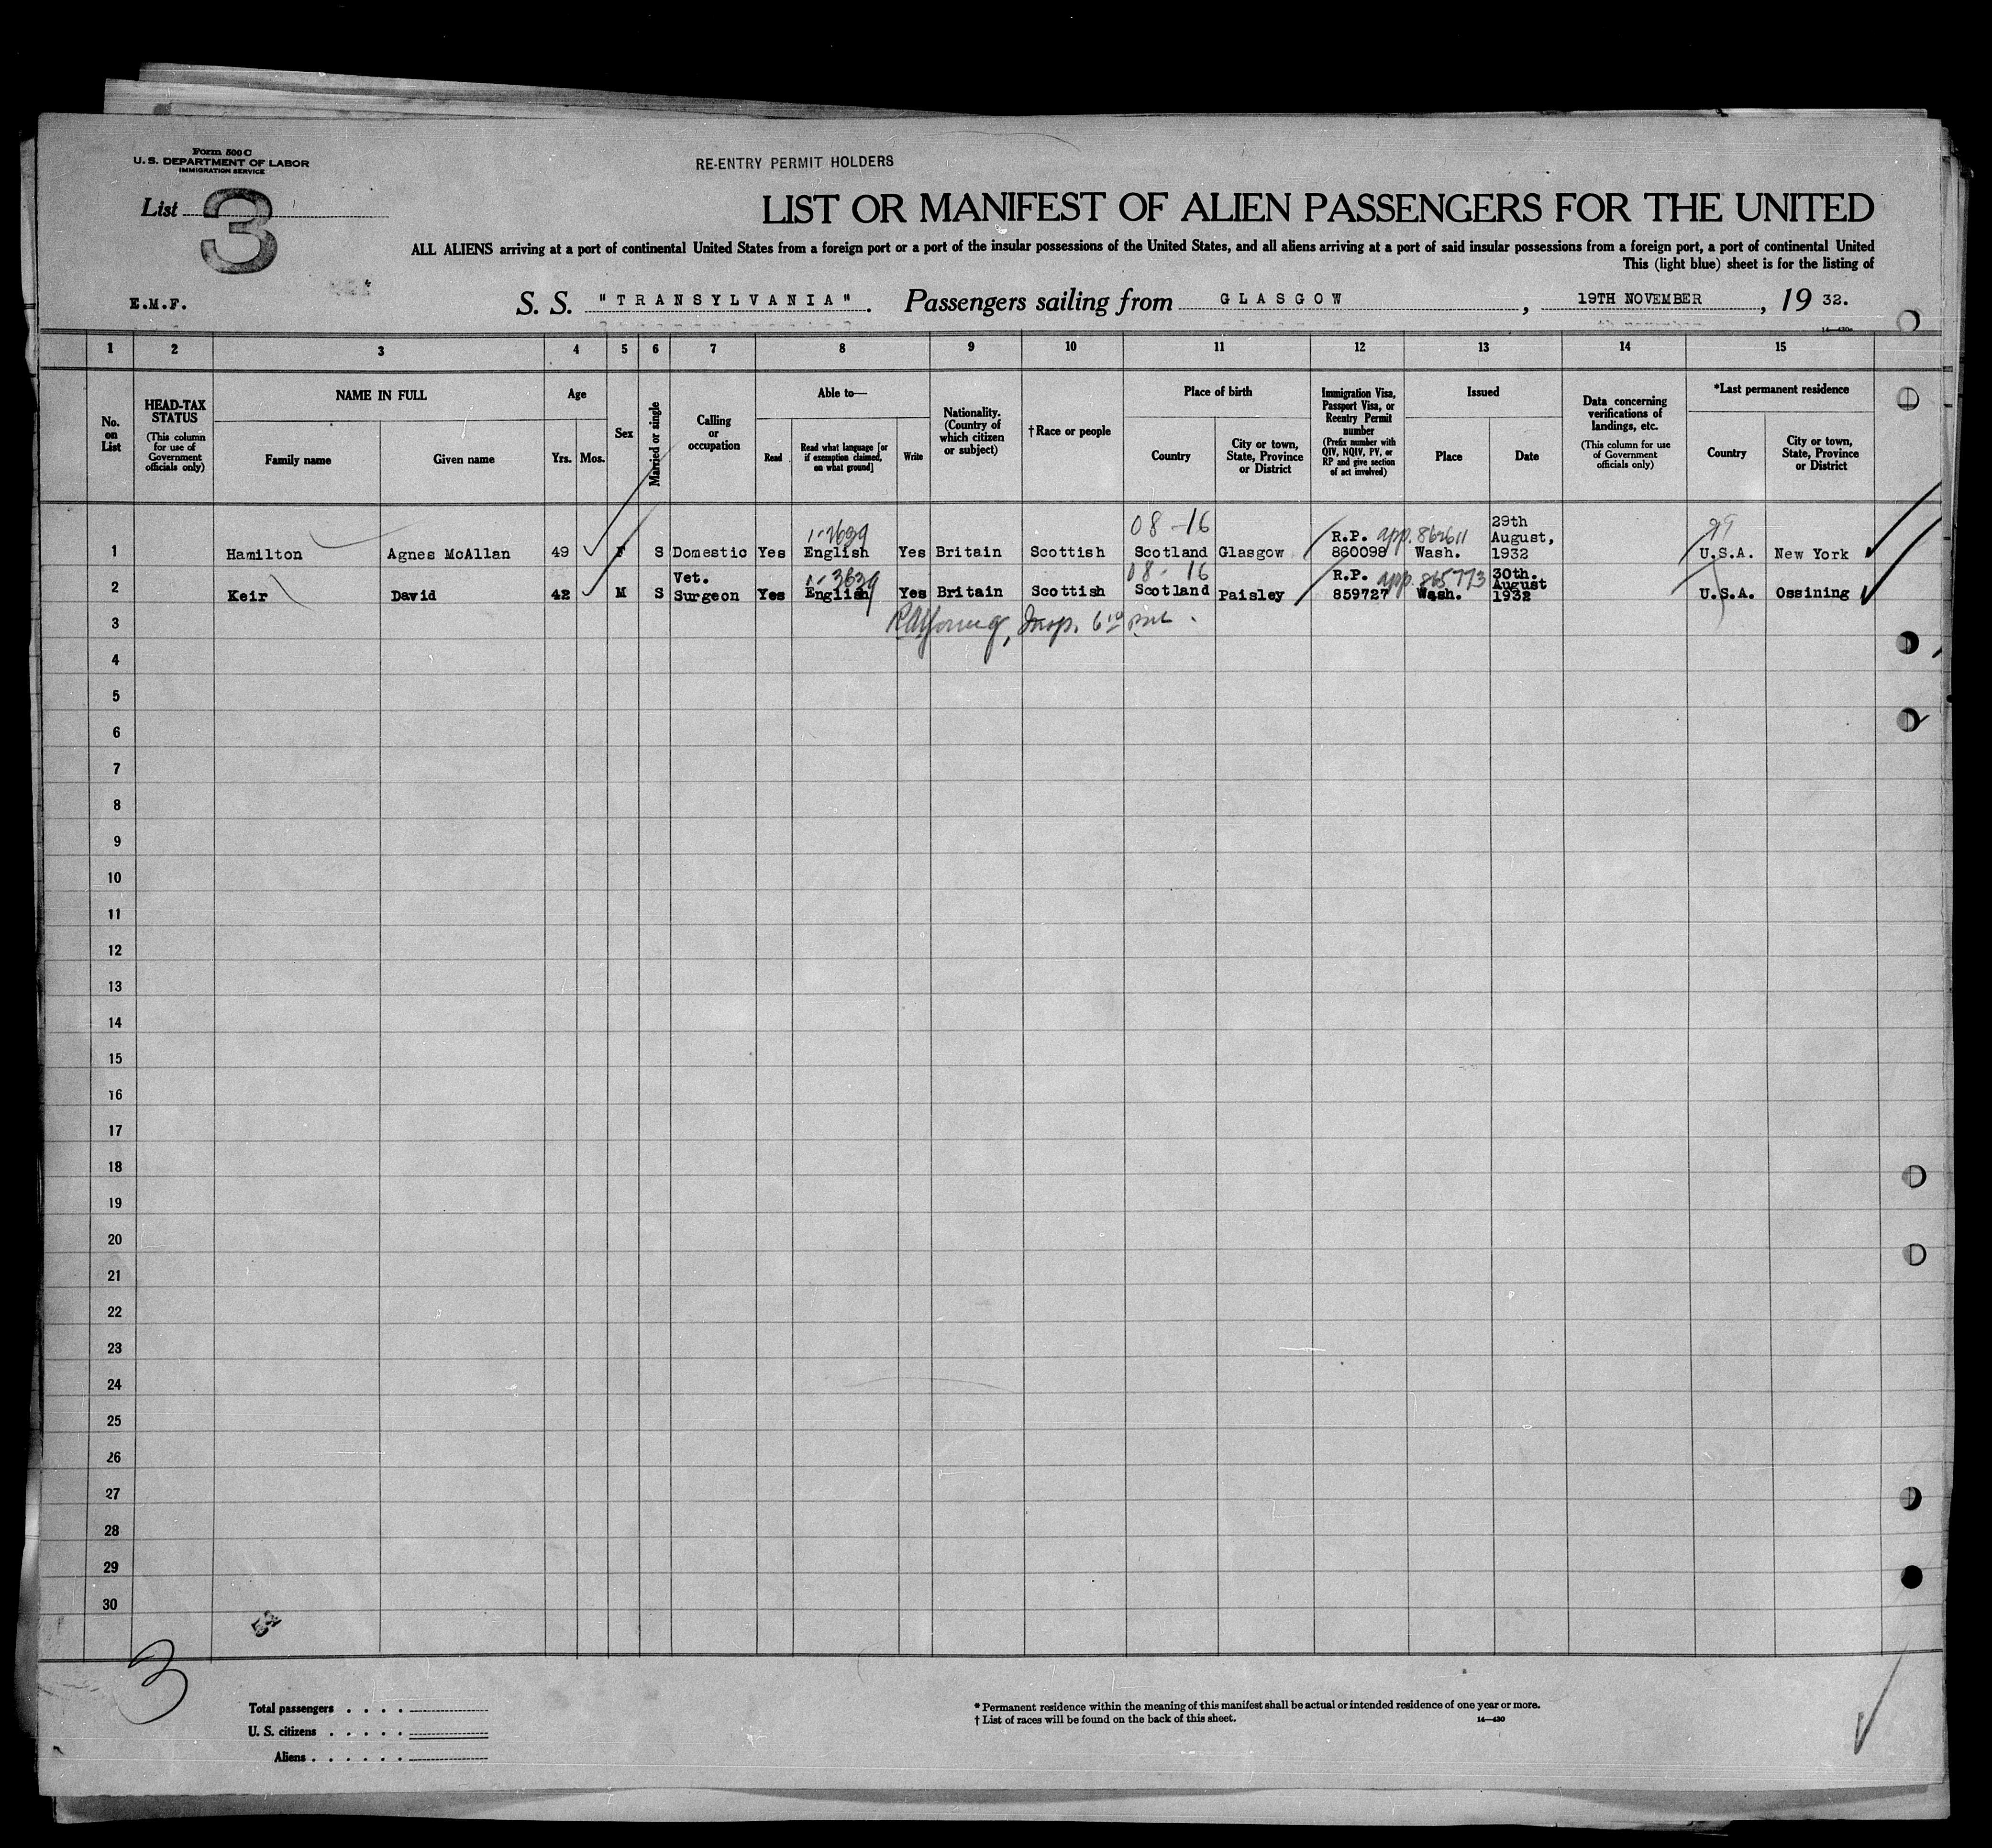 Form 500 C
U. S. DEPARTMENT OF LABOR
IMMIGRATION SERVICE
RE-ENTRY PERMIT HOLDERS
List 3
LIST OR MANIFEST OF ALIEN PASSENGERS FOR THE UNITED
ALL ALIENS arriving at a port of continental United States from a foreign port or a port of the insular possessions of the United States, and all aliens arriving at a port of said insular possessions from a foreign port, a port of continental United
This (light blue) sheet is for the listing of
E.M.F.
S. S. "TRANSYLVANIA". Passengers sailing from GLASGOW, 19TH NOVEMBER, 19 32.
14—430a
1 2 3 4 5 6 7 8 9 10 11 12 13 14 15
No. on List
HEAD-TAX STATUS
(This column for use of Government officials only)
NAME IN FULL
Family name
Given name
Age
Yrs.
Mos.
Sex
Married or single
Calling or occupation
Able to—
Read
Read what language [or if exemption claimed, on what ground]
Write
Nationality. (Country of which citizen or subject)
†Race or people
Place of birth
Country
City or town, State, Province or District
Immigration Visa, Passport Visa, or Reentry Permit number
(Prefix number with QIV, NQIV, PV, or RP and give section of act involved)
Issued
Place
Date
Data concerning verifications of landings, etc.
(This column for use of Government officials only)
*Last permanent residence
Country
City or town, State, Province or District
08-16
1 Hamilton Agnes McAllan 49 F S Domestic Yes English Yes Britain Scottish Scotland Glasgow R.P. 860098 app. 862611 Wash. 29th August, 1932 U.S.A. New York
1-3639
08-16
2 Keir David 42 M S Vet. Surgeon Yes English Yes Britain Scottish Scotland Paisley R.P. 859727 app. 865773 Wash. 30th. August 1932 U.S.A. Ossining
3
4
5
6
7
8
9
10
11
12
13
14
15
16
17
18
19
20
21
22
23
24
25
26
27
28
29
30
3
Total passengers
U. S. citizens
Aliens
* Permanent residence within the meaning of this manifest shall be actual or intended residence of one year or more.
† List of races will be found on the back of this sheet.
14—430